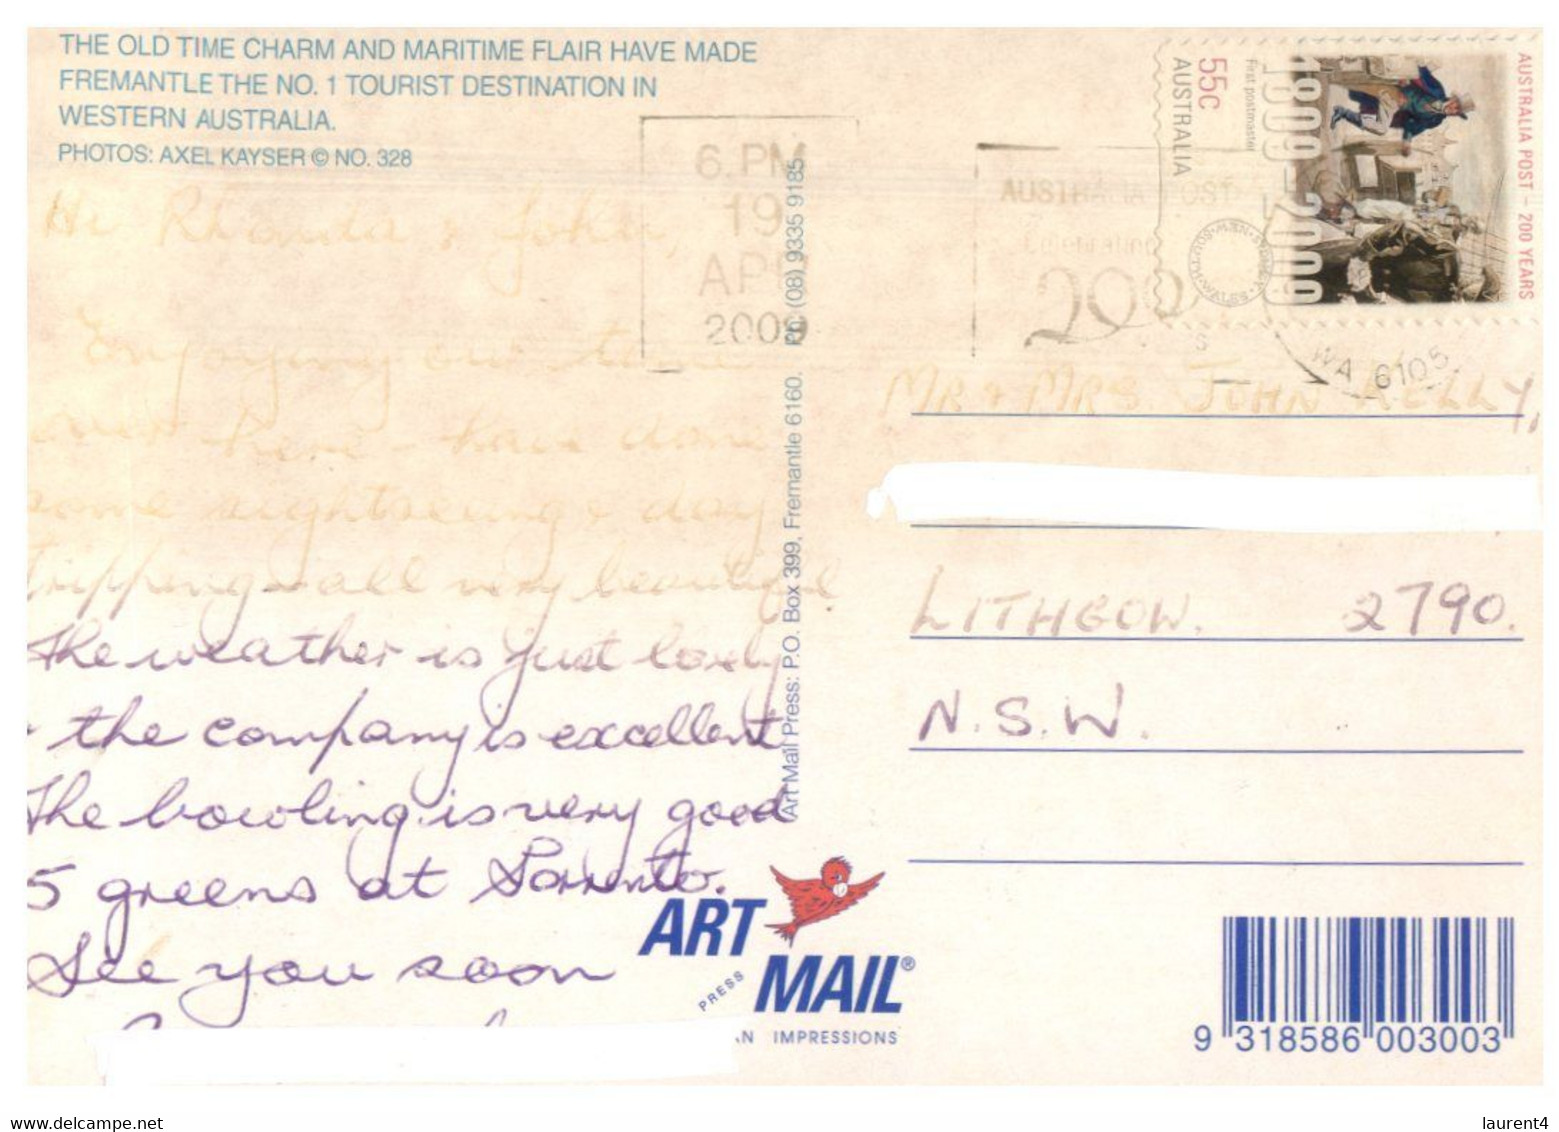 THE OLD TIME CHARM AND MARITIME FLAIR HAVE MADE
FREMANTLE THE NO. 1 TOURIST DESTINATION IN
WESTERN AUSTRALIA.
PHOTOS: AXEL KAYSER © NO. 328
Hi Rhonda & John,
Enjoying our time
over here - have done
some sightseeing & day
tripping - all very beautiful
The weather is just lovely
& the company is excellent
The bowling is very good
5 greens at Sorrento.
See you soon
Art Mail Press: P.O. Box 399, Fremantle 6160. Ph: (08) 9335 9185
6 PM
19
APR
2009
AUSTRALIA POST
Celebrating
200
WA 6105
55c
AUSTRALIA
First postmaster
1809-2009
AUSTRALIA POST - 200 YEARS
MR & MRS JOHN KELLY,
LITHGOW. 2790.
N.S.W.
ART
PRESS
MAIL®
AN IMPRESSIONS
9 318586 003003
laurent4